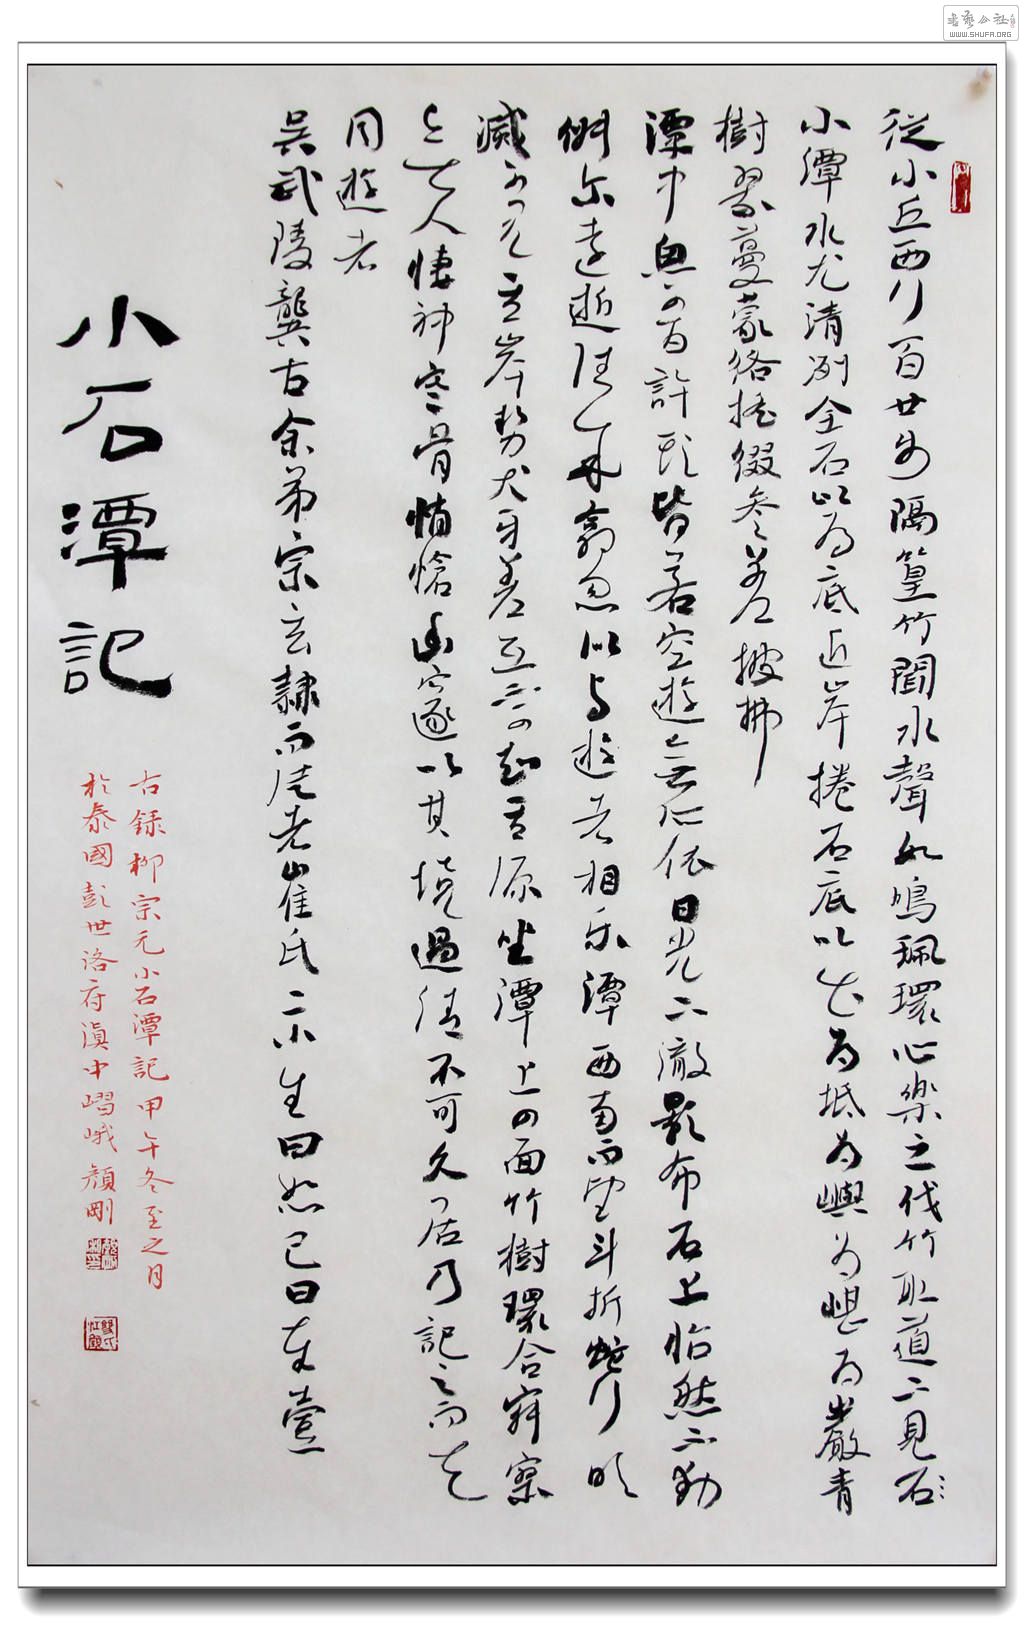 書藝公社
WWW.SHUFA.ORG
從小丘西行百廿步隔篁竹聞水聲如鳴珮環心樂之伐竹取道下見石
小潭水尤清冽全石以為底近岸捲石底以出為坻為嶼為嵁為巖青
樹翠蔓蒙絡搖綴參差披拂
潭中魚可百許頭皆若空遊無所依日光下澈影布石上怡然不動
俶尔遠逝往來翕忽似與遊者相乐潭西南而望斗折蛇行明
滅可見其岸勢犬牙差互不可知其源坐潭上四面竹樹環合寂寥
無人悽神寒骨悄愴幽邃以其境過清不可久居乃記之而去
同遊者
吳武陵龔古余弟宗玄隸而從者崔氏二小生曰恕己曰奉壹
小石潭記
右録柳宗元小石潭記甲午冬至之月
於泰國彭世洛府滇中嶍峨顏剛